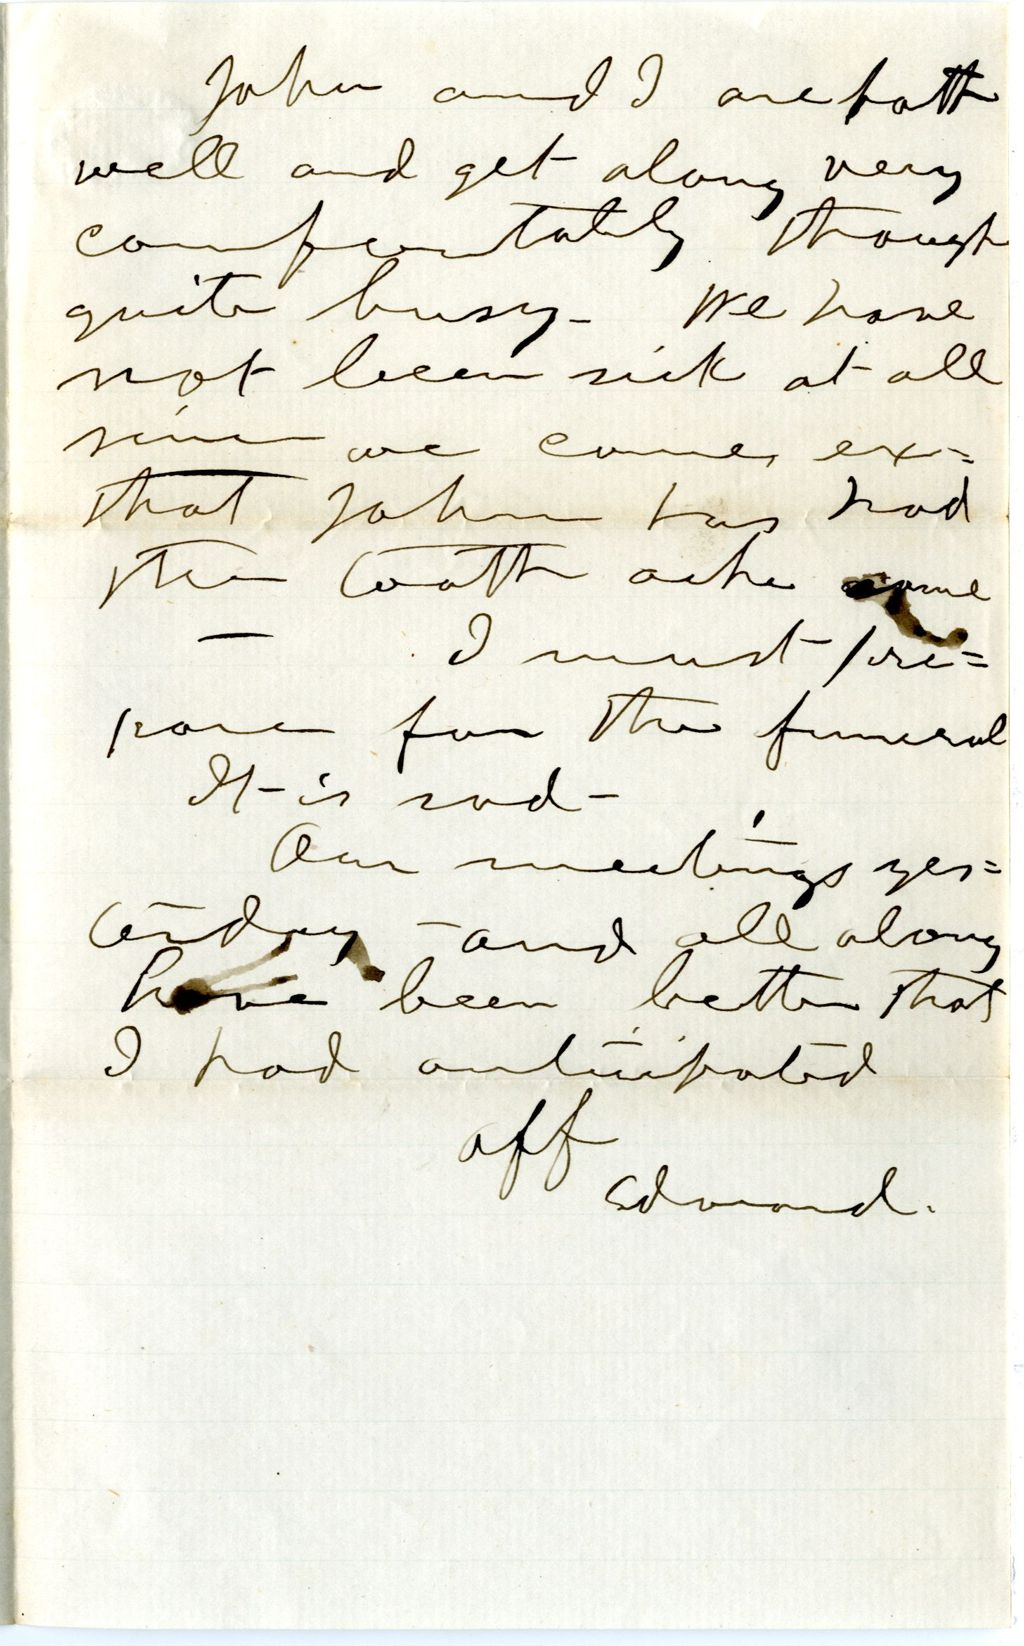 John and I are both
well and get along very
comfortably though
quite busy - We have
not been sick at all
since we came, ex=
that John has had
the tooth ache some
- I must pre=
pare for the funeral
It is sad -
Our meetings yes=
terday - and all along
have been better that
I had anticipated
aff
Edmund.